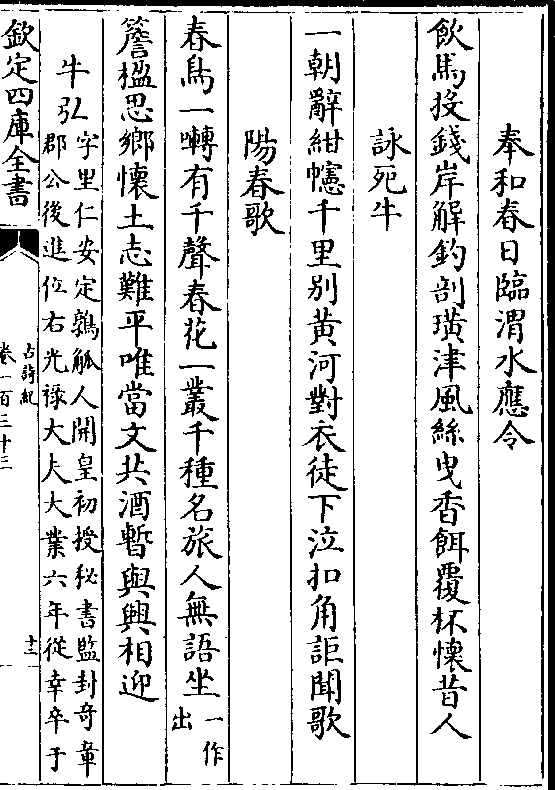 奉和春日臨渭水應令
飲馬投錢岸解釣剖璜津風絲曳香餌覆杯懷昔人
詠死牛
一朝辭紺幰千里别黄河對衣徒下泣扣角詎聞歌
陽春歌
春鳥一囀有千聲春花一叢千種名旅人無語坐一作出
簷楹思鄉懷土志難平唯當文共酒暫與興相迎
牛弘字里仁安定鶉觚人開皇初授秘書監封奇章
郡公後進位右光祿大夫大業六年從幸卒于
欽定四庫全書
古詩紀
卷一百三十三
十二